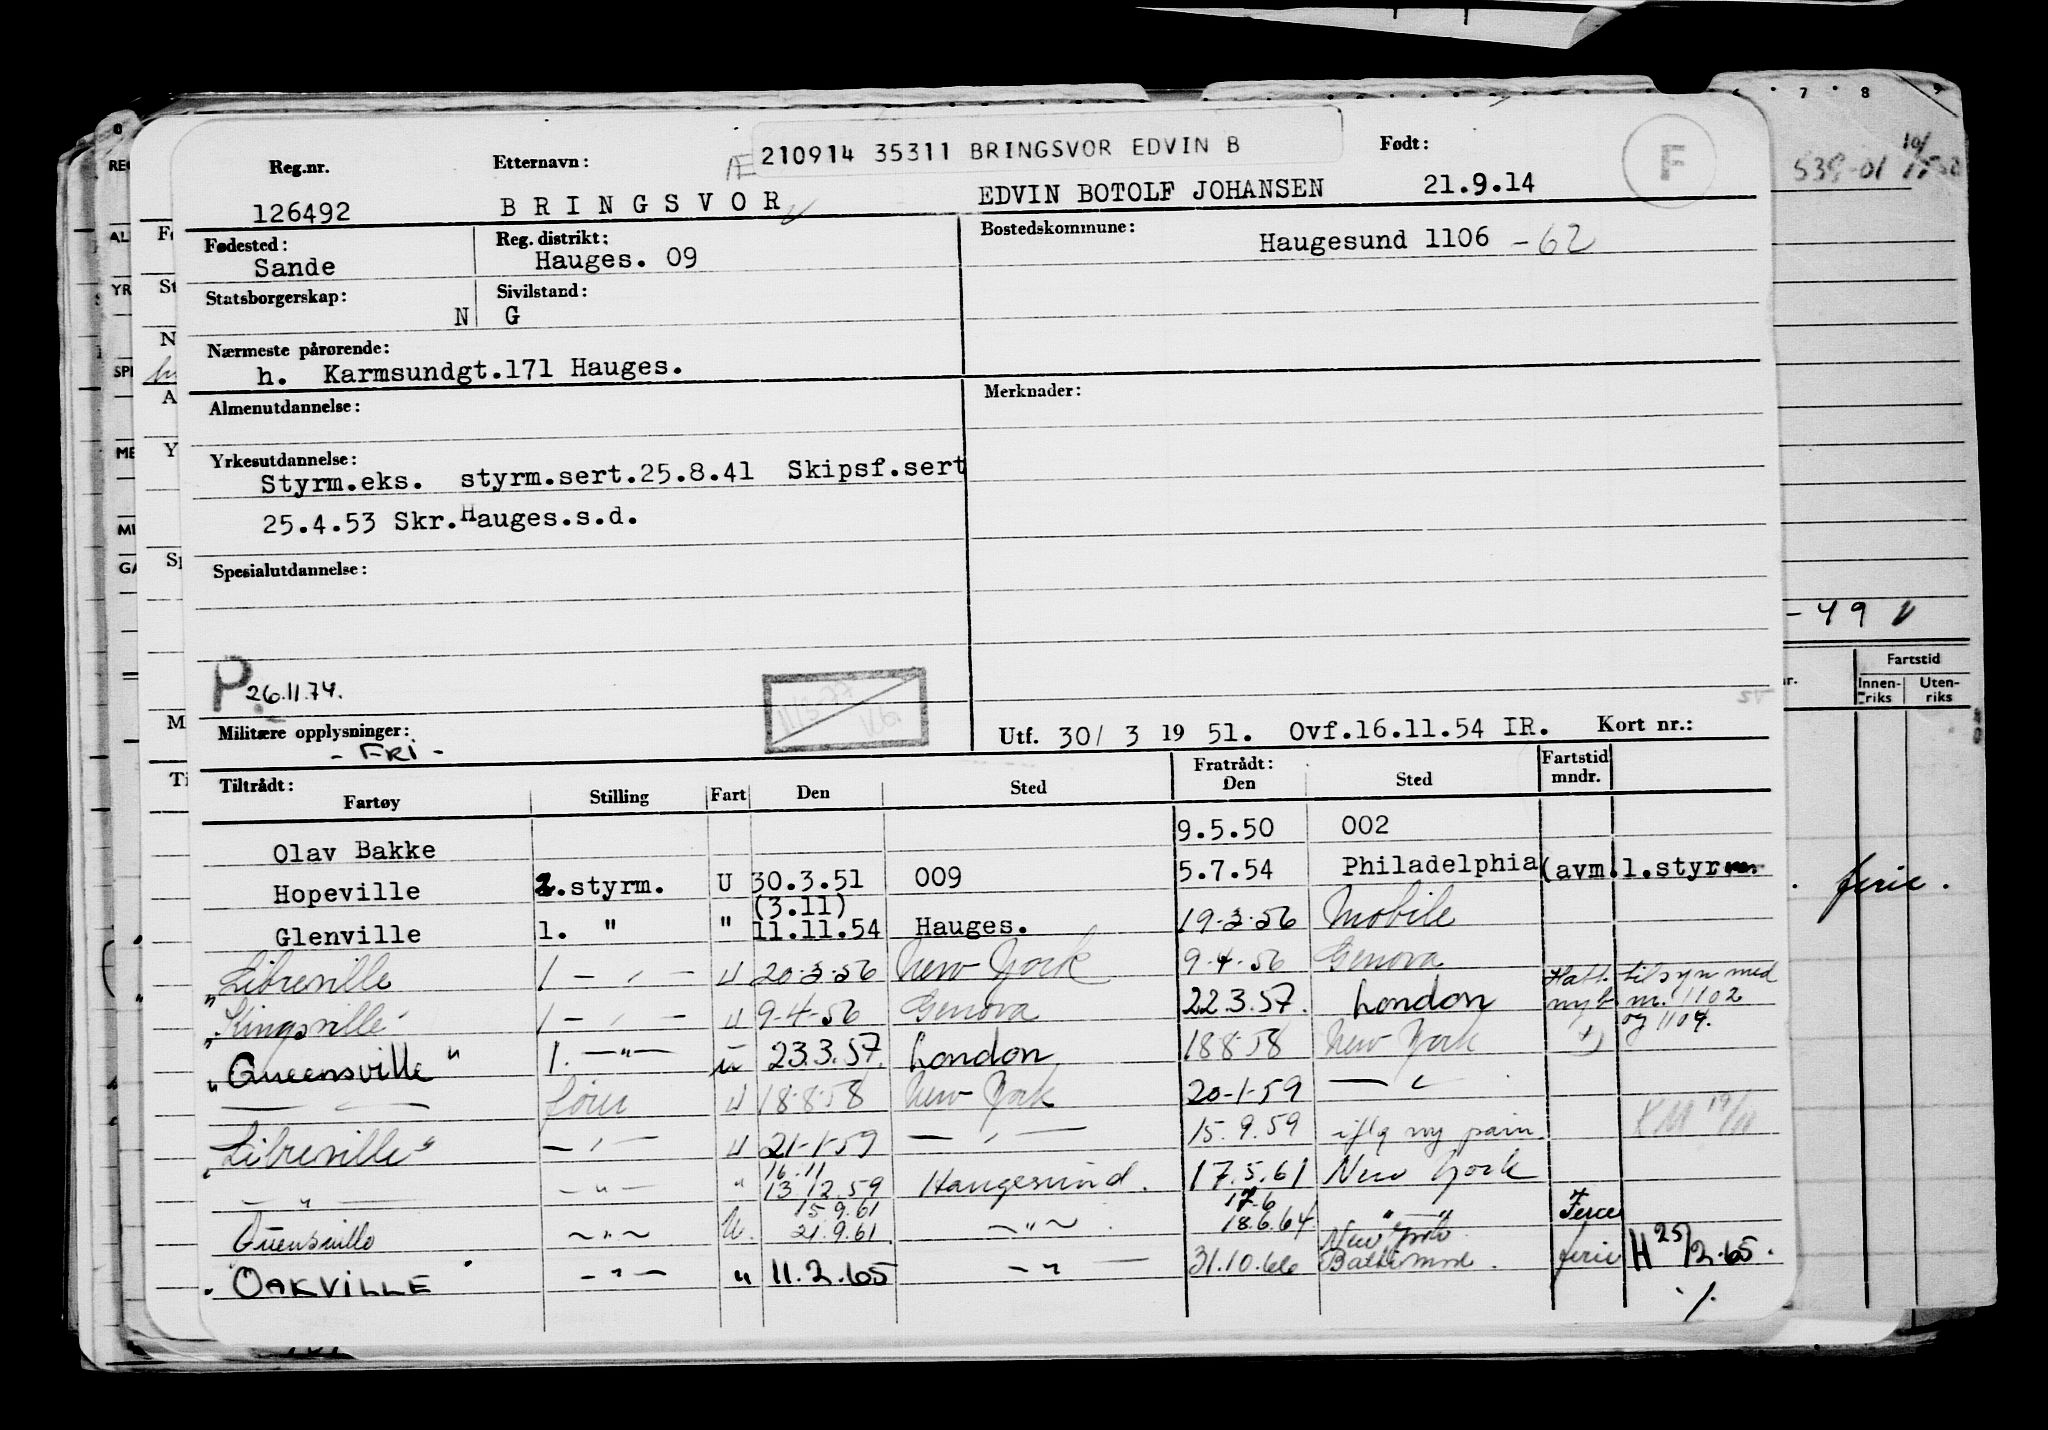 210914 35311 BRINGSVOR EDVIN B
Reg.nr. Etternavn: Født: F
126492 BRINGSVOR EDVIN BOTOLF JOHANSEN 21.9.14
Fødested: Reg. distrikt: Bostedskommune:
Sande Hauges. 09 Haugesund 1106 -62
Statsborgerskap: Sivilstand:
N G
Nærmeste pårørende:
h. Karmsundgt.171 Hauges.
Almenutdannelse: Merknader:
Yrkesutdannelse:
Styrm.eks. styrm.sert.25.8.41 Skipsf.sert
25.4.53 Skr.Hauges.s.d.
Spesialutdannelse:
P 26.11.74.
Militære opplysninger: Utf. 30/ 3 19 51. Ovf.16.11.54 IR. Kort nr.:
- FRI -
Tiltrådt: Fratrådt: Fartstid
Fartøy Stilling Fart Den Sted Den Sted mndr.
Olav Bakke 9.5.50 002
Hopeville 2.styrm. U 30.3.51 009 5.7.54 Philadelphia (avm.1.styrm
(3.11)
Glenville 1. " " 11.11.54 Hauges. 19-3-56 Mobile
"Libreville 1 - " - U 20-3-56 New York 9-4-56 Genova
"Kingsville 1 - " - U 9-4-56 Genova 22.3.57. London
Hatt. tilsyn med
nyb. nr. 1102
og 1104.
"Queensville" 1. -"- U 23.3.57. London 18-8-58 New York
- " - fører U 18-8-58 New York 20-1-59 - " -
"Libreville" - " - U 21-1-59 - " - 15.9.59
16.11
- " - - " - " 13.12.59 Haugesund. 17.5.61 New York
15.9.61 17.6
Queensville - " - U. 21.9.61 - " - 18.6.64 " " Ferie
New York
"OAKVILLE - " - " 11.2.65 - " - 31.10.66 Baltimore. ferie H 25/2.65.
./.
7 8 9
-49
Fartstid
Innen-riks Uten-riks
ferie.